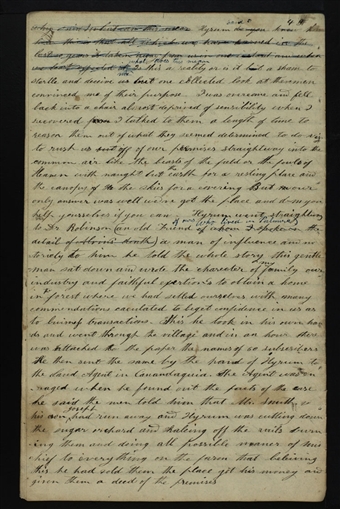 said Hyrum
what can this mean
is this a reality or is it but a sham to
startle and deceive us but one collected look at the men
convinced me of their purpose I was overcome and fell
back into a chair almost deprived of sensibility when I
recovered I talked to them a length of time to
reason them out of what they seemed determined to do viz
to rush us out of our premises straightway into the
common air like the beasts of the field or the fowls of
Heaven with naught but the earth for a resting place and
the canopy of the skies for a covering But our
only answer was well we've got the place and d—m you
help yourselves if you can Hyrum went straightway
to Dr Robinson an old Friend of ours who lived in Palmyra
of whom I spoke in the
detail of a man of influence and no
toriety to him he told the whole story this gentle
man sat down and wrote the character of my family our
industry and faithful exertions to obtain a home
in forest where we had settled ourselves with many
commendations calculated to beget confidence in us as
to business transactions This he took in his own han
ds and went through the village and in an hour there
was attached to the paper the names of 60 subscribers
He then sent the same by the hand of Hyrum to
the land Agent in Canandaguia the Agent was en
raged when he found out the facts of the case
he said the men told him that Mr Smith &
his son Joseph had run away and Hyrum was cutting down
the sugar orchard and hauling off the rails burn
ing them and doing all possible manner of mis
chief to everything on the farm that believing
this he had sold them the place got his money and
given them a deed of the premises